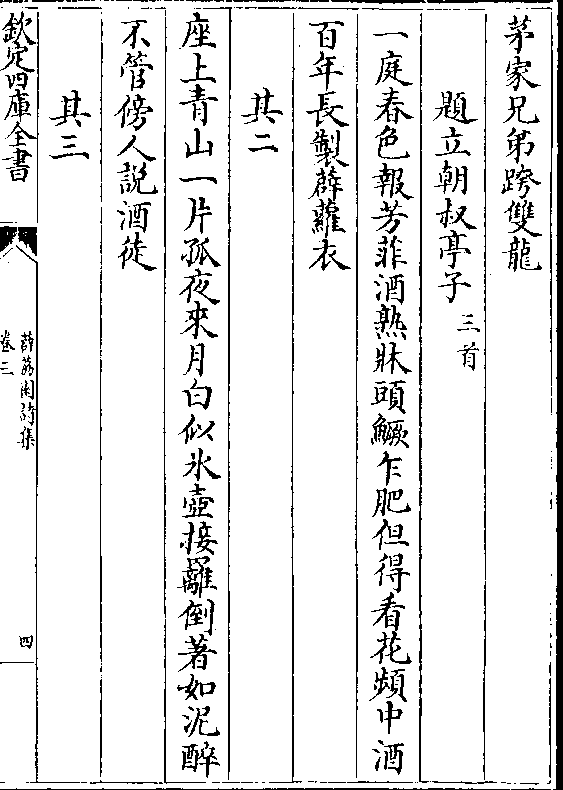 茅家兄弟跨雙龍
題立朝叔亭子三首
一庭春色報芳菲酒熟牀頭鱖乍肥但得看花頻中酒
百年長製薜蘿衣
其二
座上青山一片孤夜來月白似氷壺接䍦倒著如泥醉
不管傍人説酒徒
其三
欽定四庫全書
薜荔園詩集
卷三
四